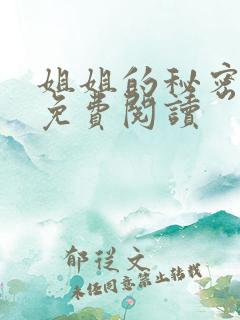 姐姐的秘密
免費閱讀
郁從文
未經同意禁止轉載